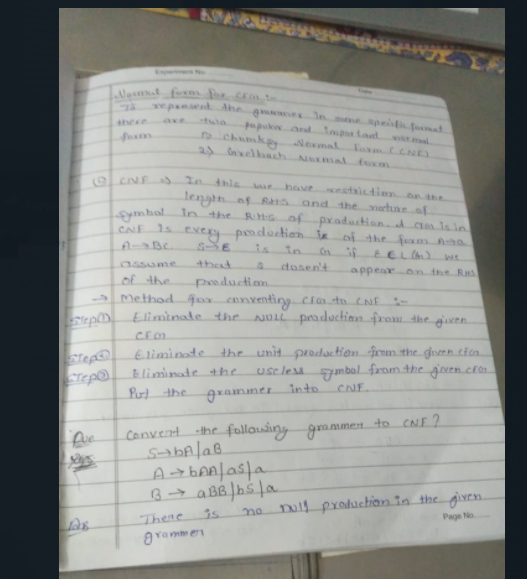 Experiment No.
Normal form for CFG :-
To represent the grammer in some specific format
there are two popular and important normal
form 1) Chomkey Normal Form (CNF)
2) Greibach Normal form
① CNF → In this we have restriction on the
length of RHS and the nature of
symbol in the RHS of production. A CFG is in
CNF is every production is of the form A→a
A→BC S→E is in G if E E L(G) we
assume that S doesn't appear on the RHS
of the production
→ Method for converting CFG to CNF :-
Step① Eliminate the NULL production from the given
CFG
Step② Eliminate the unit production from the given CFG
Step③ Eliminate the useless symbol from the given CFG
Put the grammer into CNF.
Que Convert the following grammer to CNF?
S→bA|aB
A→bAA|aS|a
B→ aBB|bS|a
There is no null production in the given
grammer
Page No.